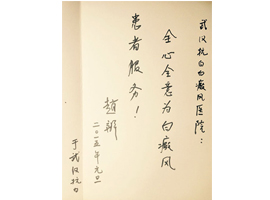 武汉抗白白癜风医院：
全心全意为白癜风
患者服务！
二〇一五年元旦
于武汉抗白